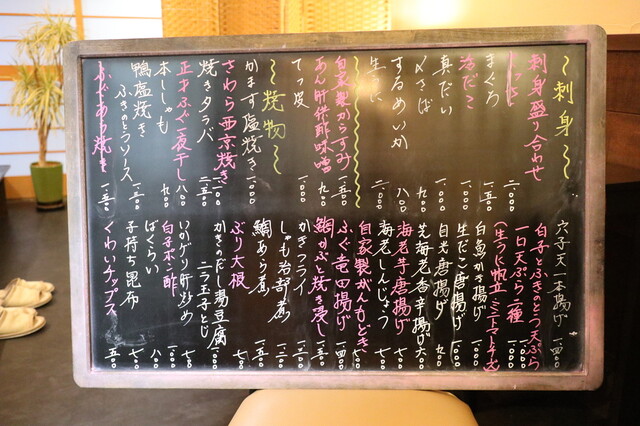 〜刺身〜
刺身盛り合わせ 二、〇〇〇
まぐろ 一、五〇〇
活だこ
真だい 一、〇〇〇
〆さば 九〇〇
するめいか 八〇〇
生うに 二、〇〇〇
自家製からすみ 一、五〇〇
あん肝供酢味噌 九〇〇
てっ皮
〜焼物〜
かます塩焼き 一、〇〇〇
さわら西京焼き 一、〇〇〇
焼きタラバ 二、五〇〇
正才ふぐ一夜干し 八〇〇
本ししゃも 九〇〇
鴨塩焼き
ふきのとうソース 一、五〇〇
ふぐあら焼き 一、五〇〇
穴子天一本揚げ 一、四〇〇
白子とふきのとう天ぷら 一、〇〇〇
一口天ぷら二種 一、〇〇〇
(生うに帆立 ミニトマトそば)
白魚かき揚げ
生だこ唐揚げ
目光唐揚げ 九〇〇
芝海老香辛揚げ 六〇〇
海老芋唐揚げ 七〇〇
海老しんじょう
自家製がんもどき
ふぐ竜田揚げ 一、四〇〇
鯛かぶと焼き浸し 一、五〇〇
かきフライ 一、二〇〇
しゃも治部煮
鯛あら煮 一、五〇〇
ぶり大根 七〇〇
かきのだし湯豆腐
ニラ玉子とじ 七〇〇
いかゲソ肝炒め
白子ポン酢 一、〇〇〇
ばくらい 八〇〇
子持ち昆布 七〇〇
くわいチップス 五〇〇